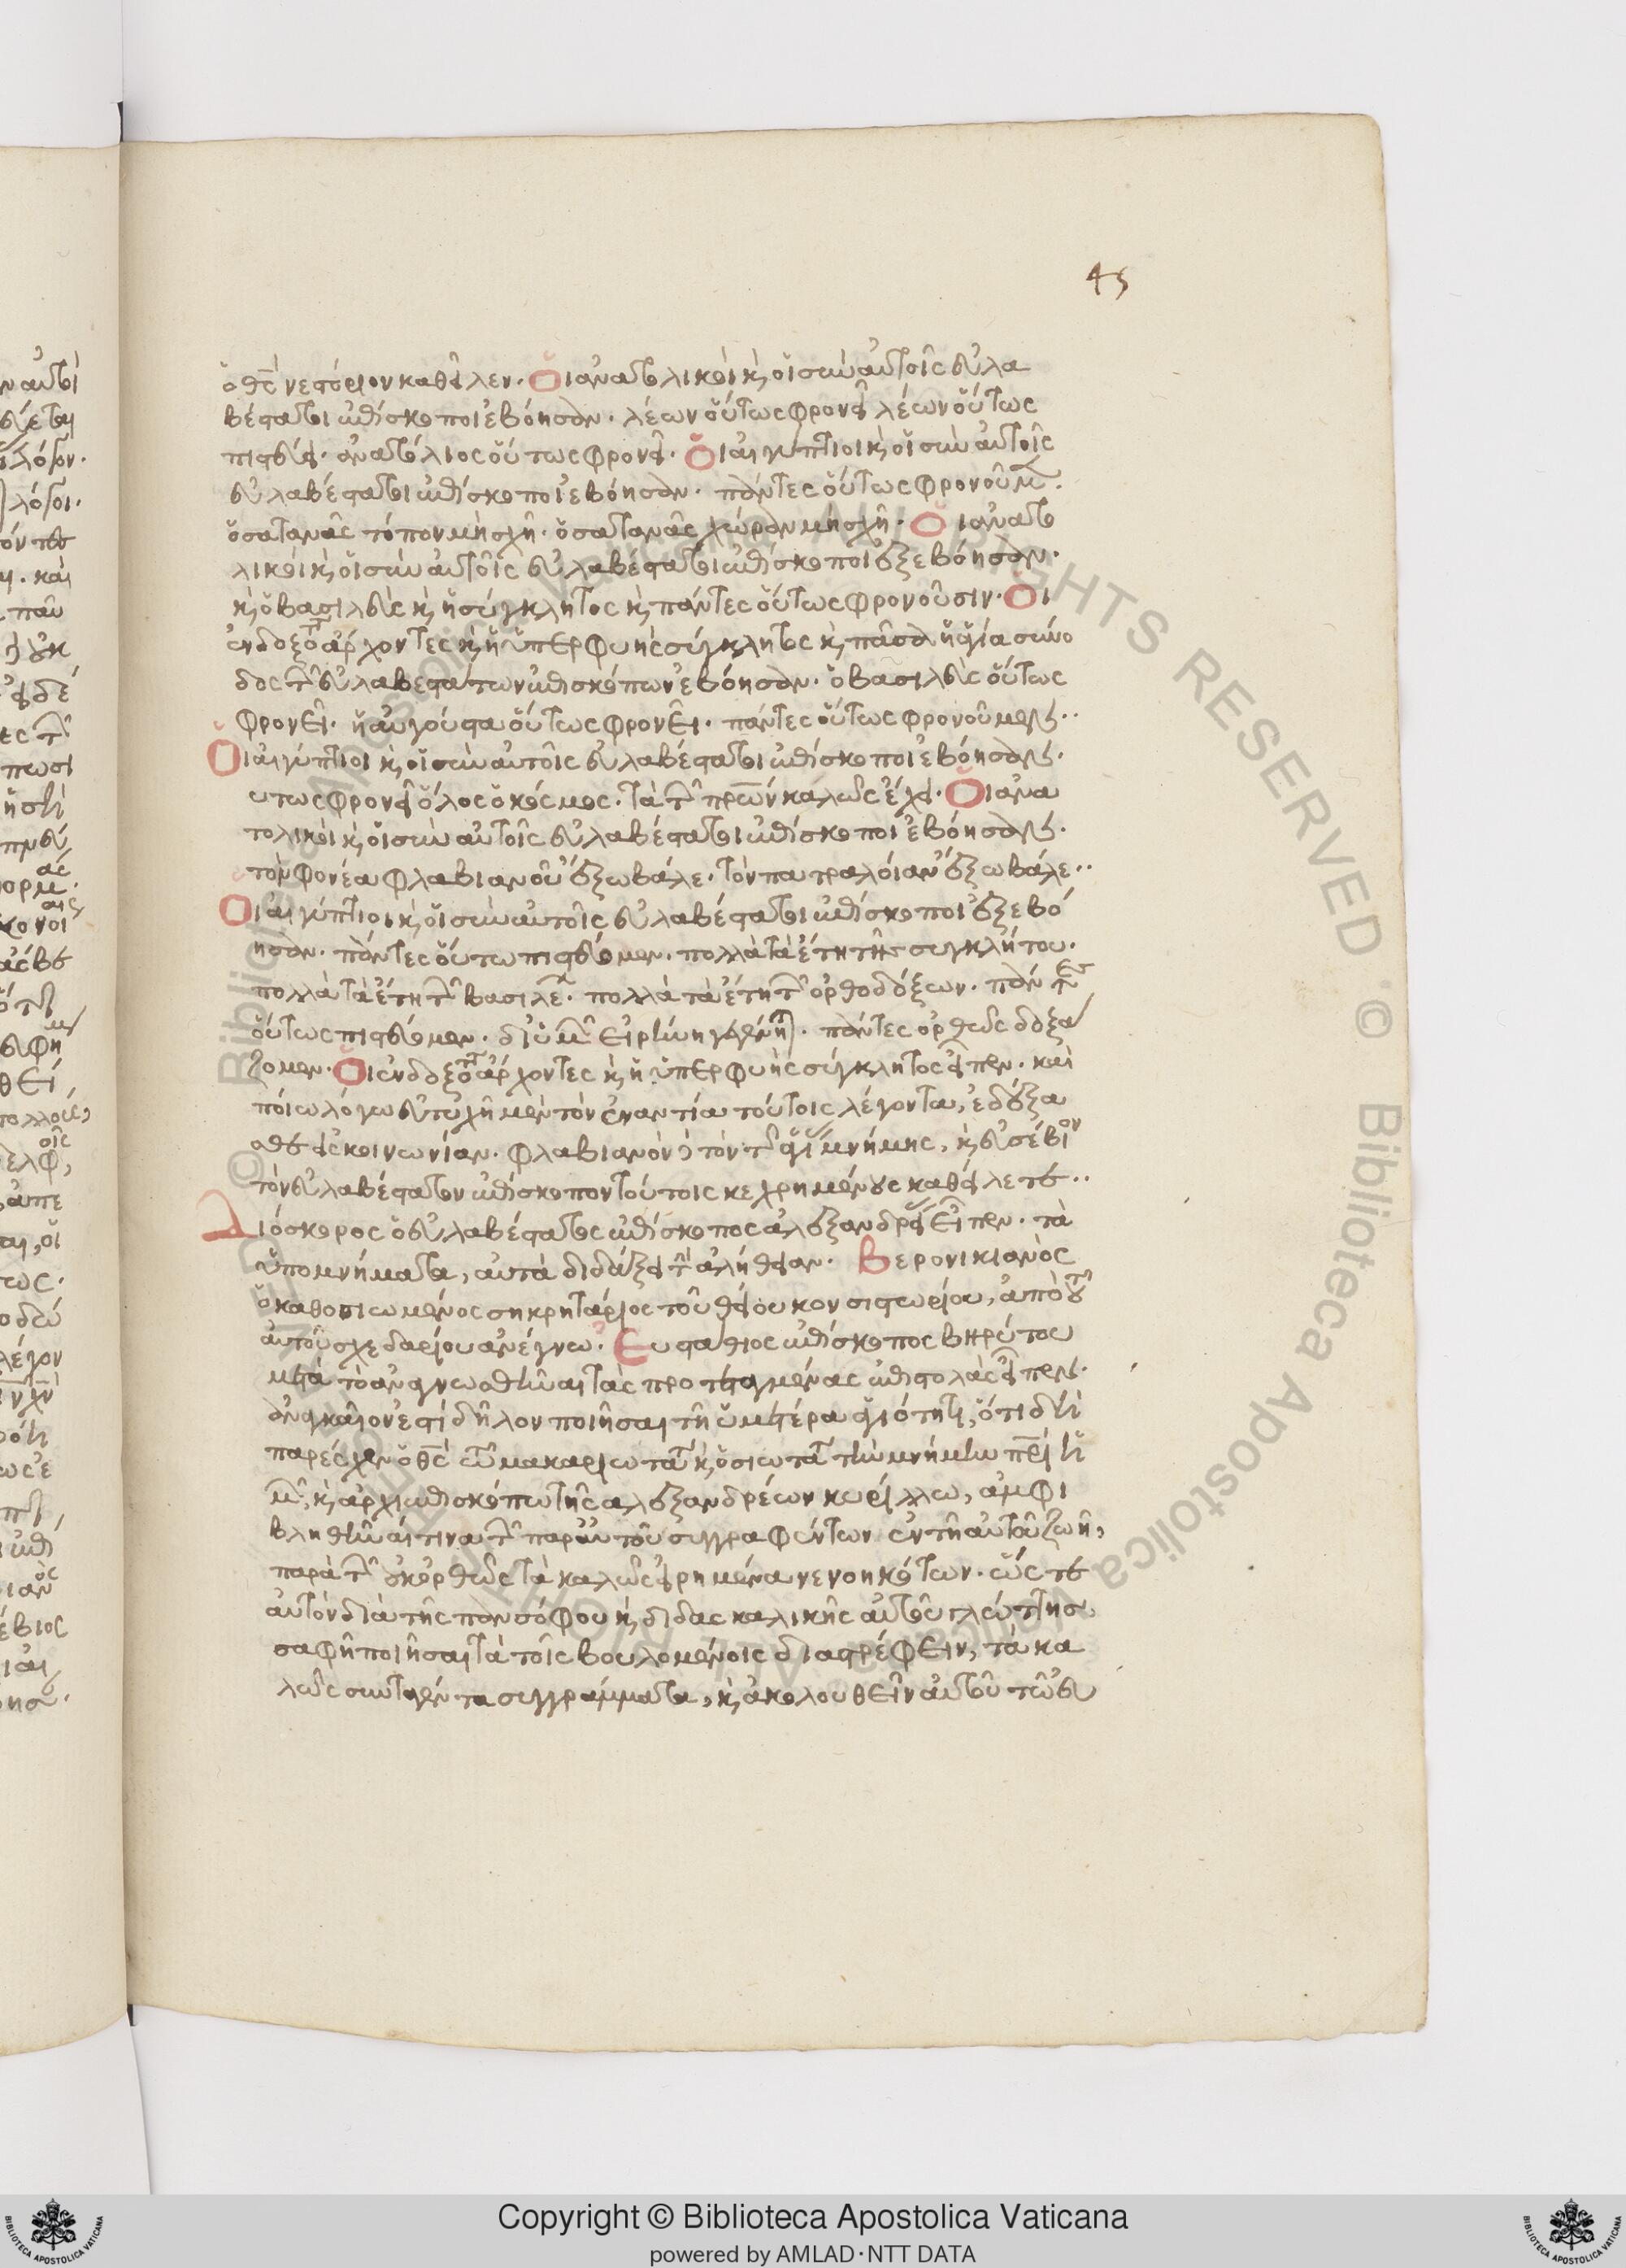 45
ὁ θς̅ νεστόριον καθεῖλεν· Οἱ ἀνατολικοὶ κ οἱ σὺν αὐτοῖς εὐλα
βέστατοι ἐπίσκοποι ἐβόησαν· λέων οὕτως φρονεῖ λέων οὕτως
πιστεύει· ἀνατόλιος οὕτως φρονεῖ· Οἱ αἰγύπτιοι κ οἱ σὺν αὐτοῖς
εὐλαβέστατοι ἐπίσκοποι ἐβόησαν· πάντες οὕτως φρονοῦμ·
ὁ σατανᾶς τόπον μὴ σχῇ· ὁ σατανᾶς χώραν μὴ σχῇ· Οἱ ἀνατο
λικοὶ κ οἱ σὺν αὐτοῖς εὐλαβέστατοι ἐπίσκοποι ἐξεβόησαν·
κ ὁ βασιλεὺς κ ἡ σύγκλητος κ πάντες οὕτως φρονοῦσιν· Οἱ
ἐνδοξότ ἄρχοντες κ ἡ ὑπερφυὴς σύγκλητος κ πᾶσα ἡ ἁγία σύνο
δος τῶν εὐλαβεστάτων ἐπισκόπων ἐβόησαν· ὁ βασιλεὺς οὕτως
φρονεῖ· ἡ αὐγούστα οὕτως φρονεῖ· πάντες οὕτως φρονοῦμεν··
Οἱ αἰγύπτιοι κ οἱ σὺν αὐτοῖς εὐλαβέστατοι ἐπίσκοποι ἐβόησαν·
υτως φρονεῖ ὅλος ὁ κόσμος· τὰ τῶν πρων̅ καλῶς ἔχει· Οἱ ἀνα
τολικοὶ κ οἱ σὺν αὐτοῖς εὐλαβέστατοι ἐπίσκοποι ἐβόησαν·
τὸν φονέα φλαβιανοῦ ἔξω βάλε· τὸν πατραλοίαν ἔξω βάλε··
Οἱ αἰγύπτιοι κ οἱ σὺν αὐτοῖς εὐλαβέστατοι ἐπίσκοποι ἐξεβό
ησαν· πάντες οὕτω πιστεύομεν· πολλὰ τὰ ἔτη τῆς συγκλήτου·
πολλὰ τὰ ἔτη τῶν βασιλέ· πολλὰ τὰ ἔτη τῶν ὀρθοδόξων· πάντες
οὕτως πιστεύομεν· δι' ὑμῶν εἰρήνη γένηται· πάντες ὀρθῶς δοξά
ζομεν· Οἱ ἐνδοξότ ἄρχοντες κ ἡ ὑπερφυὴς σύγκλητος εἶπεν· καὶ
ποίω λόγω εὐτυχῆ μὲν τὸν ἐναντία τούτοις λέγοντα, ἐδέξα
σθε εἰς κοινωνίαν· φλαβιανὸν δὲ τὸν τῆς ἁγίας μνήμης, κ εὐσέβιον
τὸν εὐλαβέστατον ἐπίσκοπον τούτοις κεχρημένους καθείλετε··
Διόσκορος ὁ εὐλαβέστατος ἐπίσκοπος ἀλεξανδρείας εἶπεν· τὰ
ὑπομνήματα, αὐτὰ διδάξει τὴν ἀλήθειαν· Βερονικιανὸς
ὁ καθοσιωμένος σηκρητάριος τοῦ θείου κονσιστωρίου, ἀπὸ τοῦ
αὐτοῦ σχεδαρίου ἀνέγνω· Ευσταθιος ἐπίσκοπος βηρύτου
μετὰ τὸ ἀναγνωσθῆναι τὰς προτεταγμένας ἐπιστολὰς εἶπεν·
ἀναγκαῖον ἐστὶ δῆλον ποιῆσαι τῇ ὑμετέρα ἁγιότητι, ὅτι δὴ
παρέσχεν ὁ θς̅ τῷ μακαριωτά κ ὁσιωτά τὴν μνήμην πρι̅ ἡ
μῶν, κ ἀρχιεπισκόπω τῆς αλεξανδρέων κυρίλλω, ἀμφι
βληθῆναί τινα τῶν παρ' αὐτοῦ συγγραφέντων ἐν τῇ αὐτοῦ ζωῇ,
παρὰ τῶν οὐκ ὀρθῶς τὰ καλῶς εἰρημένα νενοηκότων· ὥς τε
αὐτὸν διὰ τῆς πανσόφου κ διδασκαλικῆς αὐτοῦ γλώττησ
σαφῆ ποιῆσαι τὰ τοῖς βουλομένοις διαστρέφειν, τὰ κα
λῶς συνταγέντα συγγράμματα, κ ἀκολουθεῖν αὐτοῦ τῷ εὐ
Copyright © Biblioteca Apostolica Vaticana
powered by AMLAD·NTT DATA